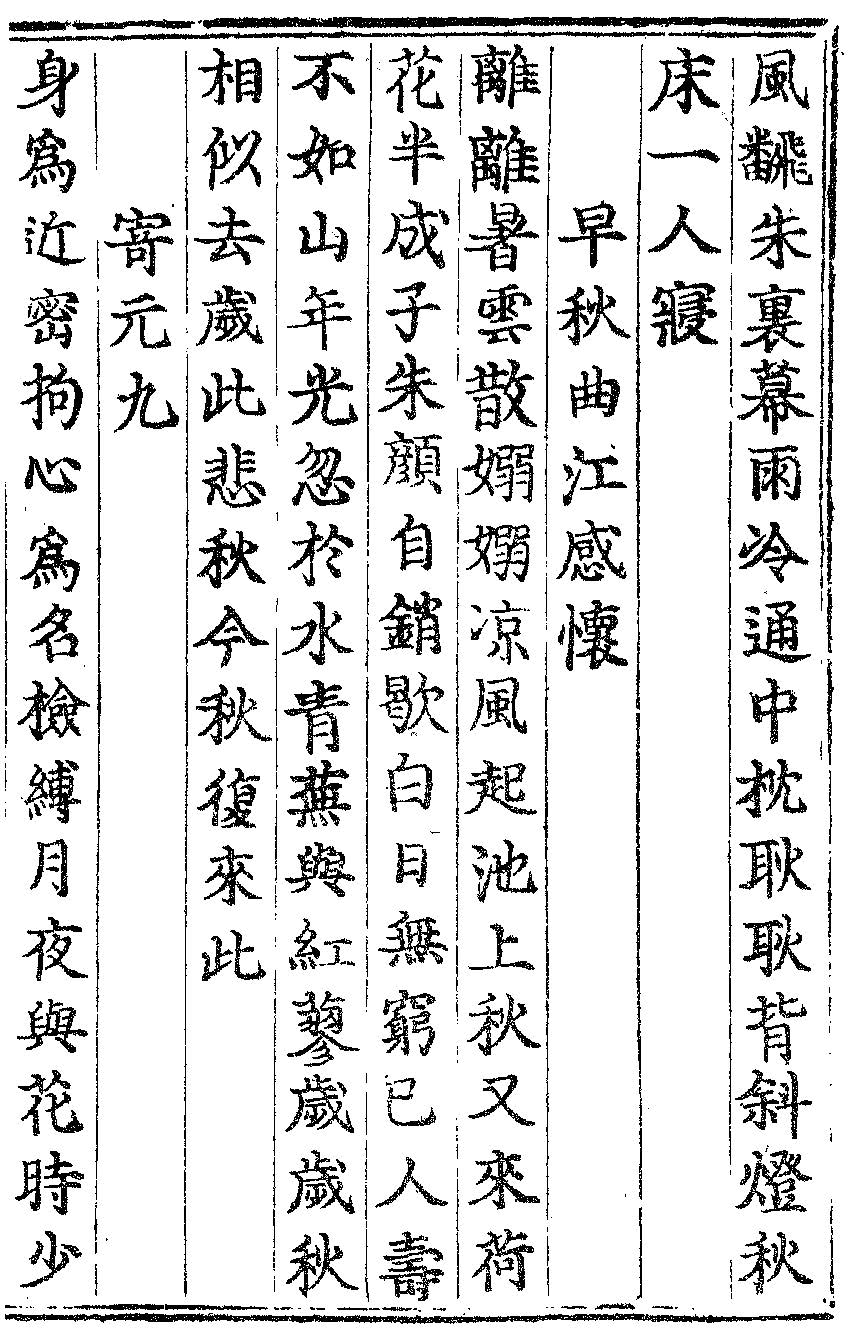 風飜朱裏幕雨冷通中枕耿耿背斜燈秋
床一人寢
早秋曲江感懷
離離暑雲散嫋嫋凉風起池上秋又來荷
花半成子朱顔自銷歇白日無窮已人壽
不如山年光忽於水青蕪與紅蓼歲歲秋
相似去歲此悲秋今秋復來此
寄元九
身爲近密拘心爲名檢縛月夜與花時少